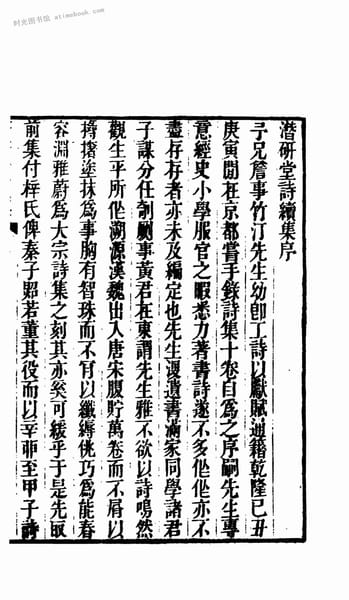 时光图书馆 atimebook.com
潛研堂詩續集序
予兄詹事竹汀先生幼卽工詩以獻賦通籍乾隆己丑
庚寅閒在京都嘗手錄詩集十卷自爲之序嗣先生專
意經史小學服官之暇悉力著書詩遂不多作作亦不
盡存存者亦未及編定也先生歿遺書滿家同學諸君
子謀分任剞劂事黃君在東謂先生雅不欲以詩鳴然
觀生平所作溯源漢魏出入唐宋腹貯萬卷而不屑以
撏撦塗抹爲事胸有智珠而不肎以纖縟佻巧爲能舂
容淵雅蔚爲大宗詩集之刻其亦奚可緩乎于是先取
前集付梓氏俾秦子照若董其役而以辛卯至甲子詩